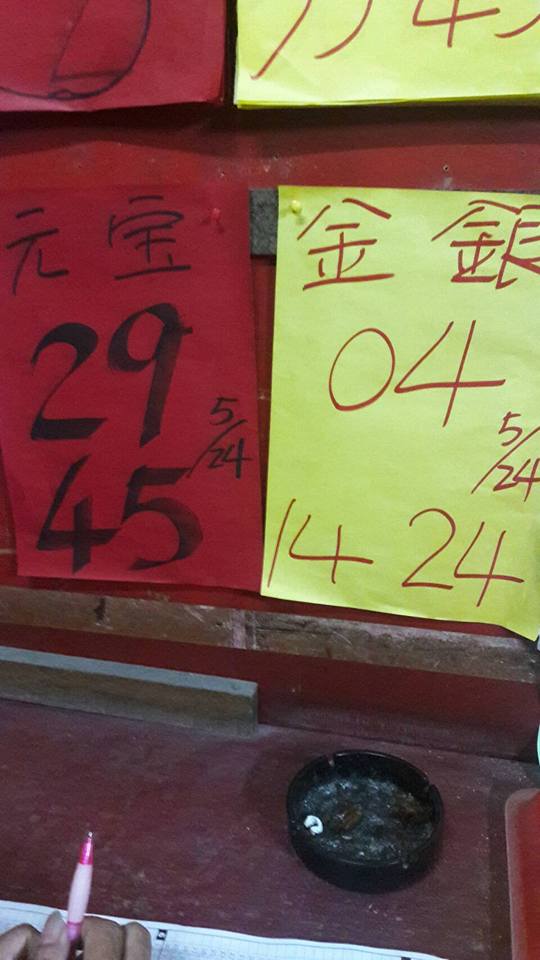 元宝
29
5/24
45
金銀
04
5/24
14 24